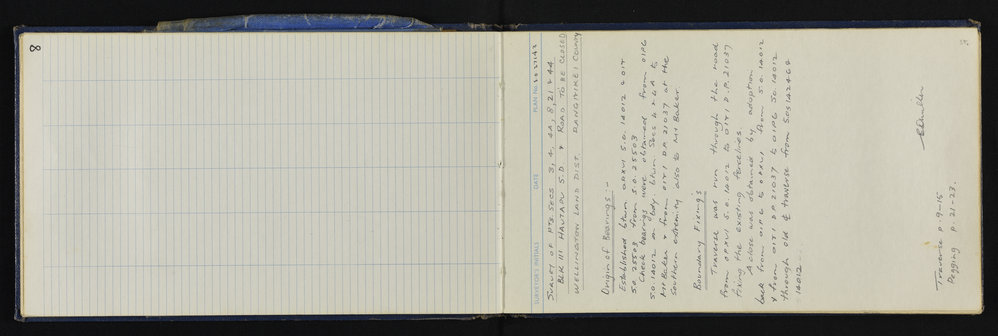 8
SURVEYOR'S INITIALS DATE PLAN No. S.O 27142
SURVEY OF PTS. SECS 3, 4, 4A, 8, 21 & 44
BLK III HAUTAPU S.D & ROAD TO BE CLOSED
WELLINGTON LAND DIST. RANGITIKEI COUNTY
Origin of Bearings :-
Established btwn OPXVI S.O. 14012 & OIT
S.O. 25503 from S.O. 25503
Check bearings were obtained from OIP6
S.O. 14012 on bdy. btwn Secs & 6A to
Mt Baker & from OIT1 D.P. 21037 at the
Southern extremity also to Mt Baker.
Boundary Fixings
Traverse was run through the road
from OPXVI S.O. 14012 to OIT1 D.P. 21037
fixing the existing fencelines.
A close was obtained by adoption
back from OIP6 to OPXVI from S.O. 14012
& from OIT1 D.P. 21037 to OIP6 S.O. 14012
through old traverse from SOs 14246 &
14012.
Traverse p. 9-15
Pegging p. 21-23.